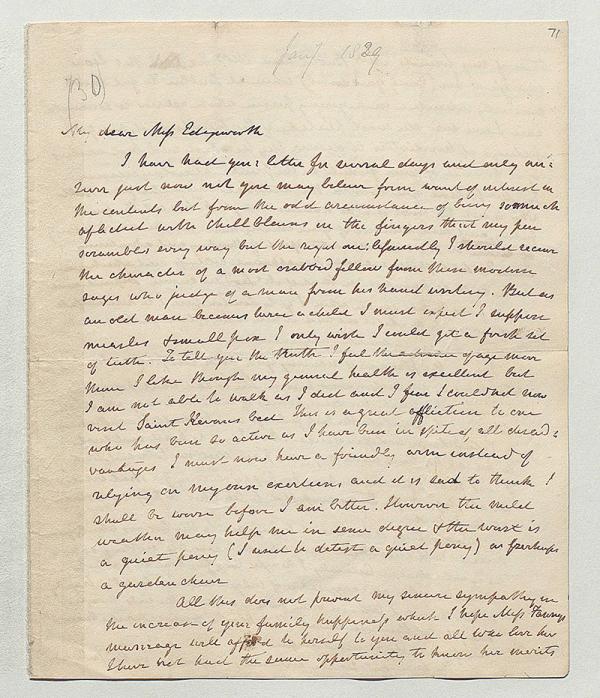 71
Jany 1829
(30)
My dear Miss Edgeworth
I have had your letter for several days and only an:
swer just now not you may believe from want of interest in
the contents but from the odd circumstance of being so much
aflicted with chillblains in the fingers that my pen
scrambles every way but the right one; Assuredly I should secure
the character of a most crabbed fellow from these modern
sages who judge of a man from his hand writing. But as
an old man becomes twice a child I must expect I suppose
measles & small pox I only wish I could get a fresh set
of teeth. To tell you the truth I feel the advance of age more
than I like though my general health is excellent but
I am not able to walk as I did and I fear I could not now
visit Saint Kevans bed This is a great affliction to one
who has been so active as I have been in spite of all disad:
vantages I must now have a friendly arm instead of
relying on my own exertions and it is sad to think I
shall be worse before I am better. However the mild
weather may help me in some degree & the worst is
a quiet poney (I used to detest a quiet poney) or perhaps
a garden chair
All this does not prevent my sincere sympathy in
the increase of your family happiness which I hope Miss Fannys
marriage will afford to herself to you and all who love her
I have not had the same opportunity to know her merits